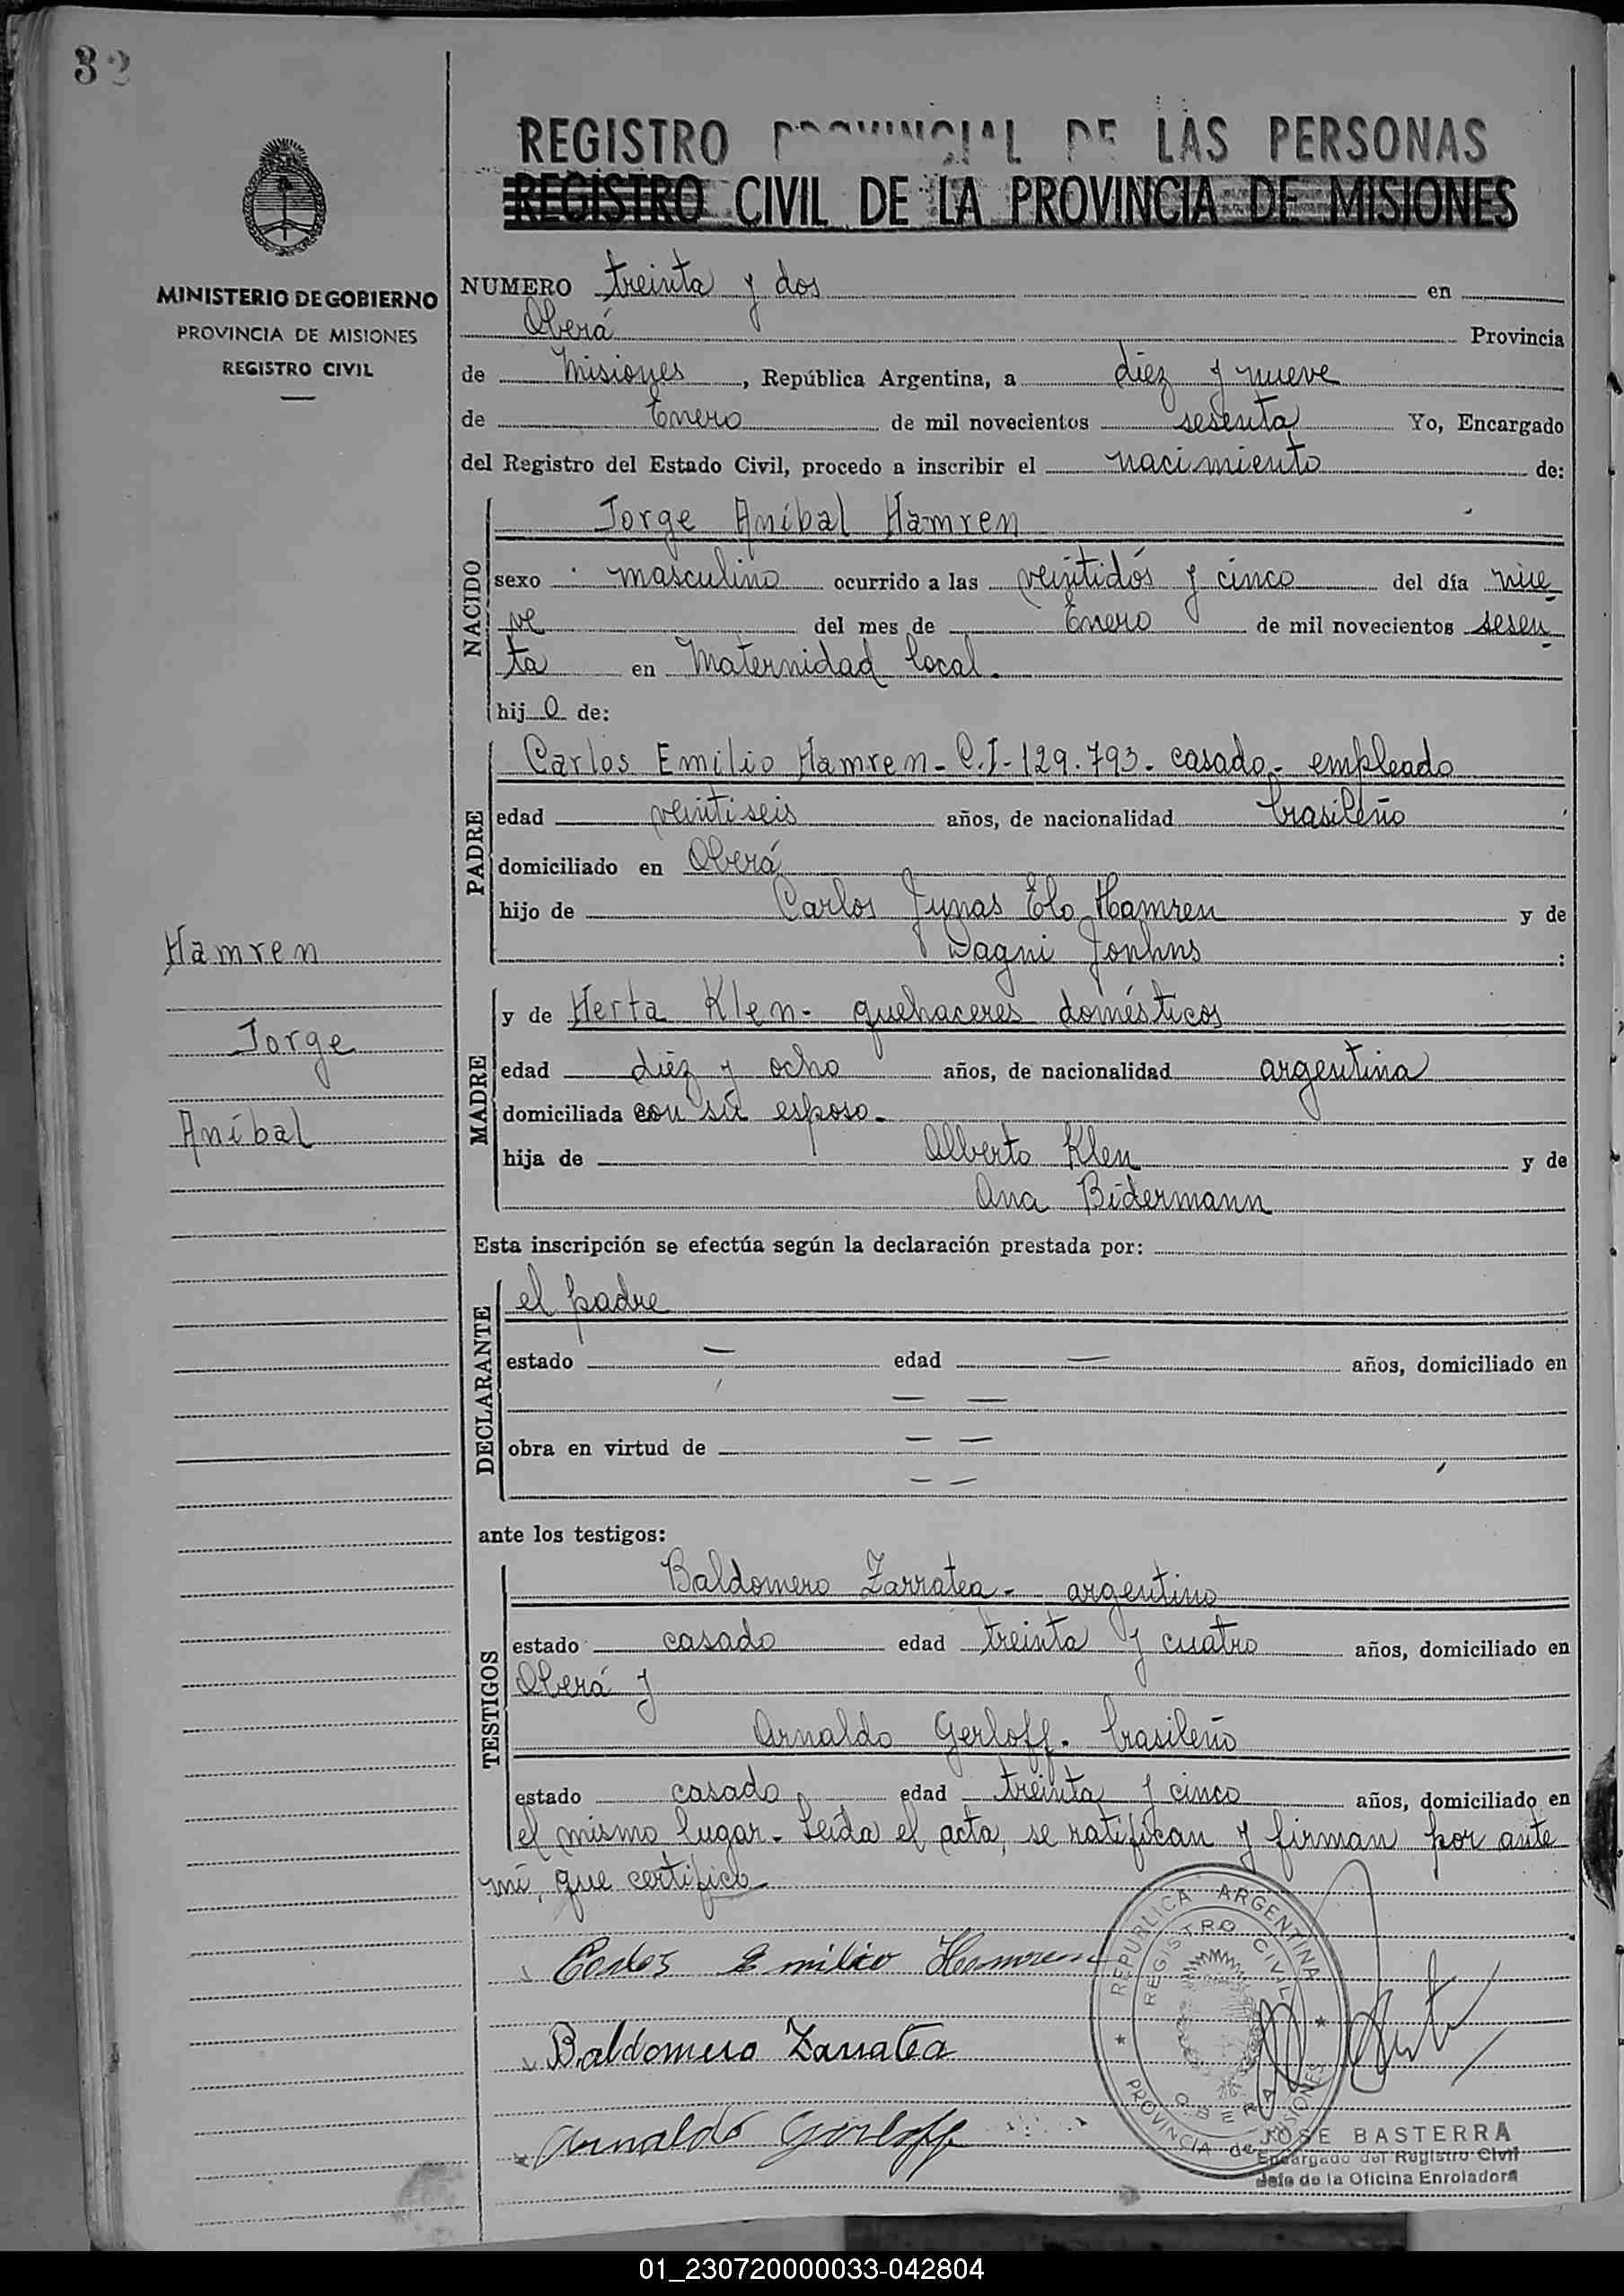 32
REGISTRO PROVINCIAL DE LAS PERSONAS
REGISTRO CIVIL DE LA PROVINCIA DE MISIONES
MINISTERIO DE GOBIERNO
PROVINCIA DE MISIONES
REGISTRO CIVIL
NUMERO treinta y dos en
Oberá Provincia
de Misiones, República Argentina, a diez y nueve
de Enero de mil novecientos sesenta Yo, Encargado
del Registro del Estado Civil, procedo a inscribir el nacimiento de:
NACIDO
Jorge Aníbal Hamren
sexo masculino ocurrido a las veintidós y cinco del día nue
ve del mes de Enero de mil novecientos sesen
ta en Maternidad local.
hijo de:
PADRE
Carlos Emilio Hamren - C.I - 129.793 - casado - empleado
edad veintiseis años, de nacionalidad brasileño
domiciliado en Oberá
hijo de Carlos Junas Elo Hamren y de
Dagni Jonhns :
MADRE
y de Herta Klen - quehaceres domésticos
edad diez y ocho años, de nacionalidad argentina
domiciliada con su esposo -
hija de Alberto Klen y de
Ana Bidermann
Hamren
Jorge
Aníbal
Esta inscripción se efectúa según la declaración prestada por:
DECLARANTE
el padre
estado — edad — años, domiciliado en
— —
obra en virtud de — —
— —
ante los testigos:
TESTIGOS
Baldomero Zarratea - argentino
estado casado edad treinta y cuatro años, domiciliado en
Oberá y
Arnaldo Gerloff. brasileño
estado casado edad treinta y cinco años, domiciliado en
el mismo lugar - Leída el acta, se ratifican y firman por ante
mí, que certifico
Carlos Emilio Hamren
Baldomero Zarratea
Arnaldo Gerloff
REPUBLICA ARGENTINA
REGISTRO CIVIL
OBERA
PROVINCIA de MISIONES
JOSE BASTERRA
Encargado del Registro Civil
Jefe de la Oficina Enroladora
01_230720000033-042804